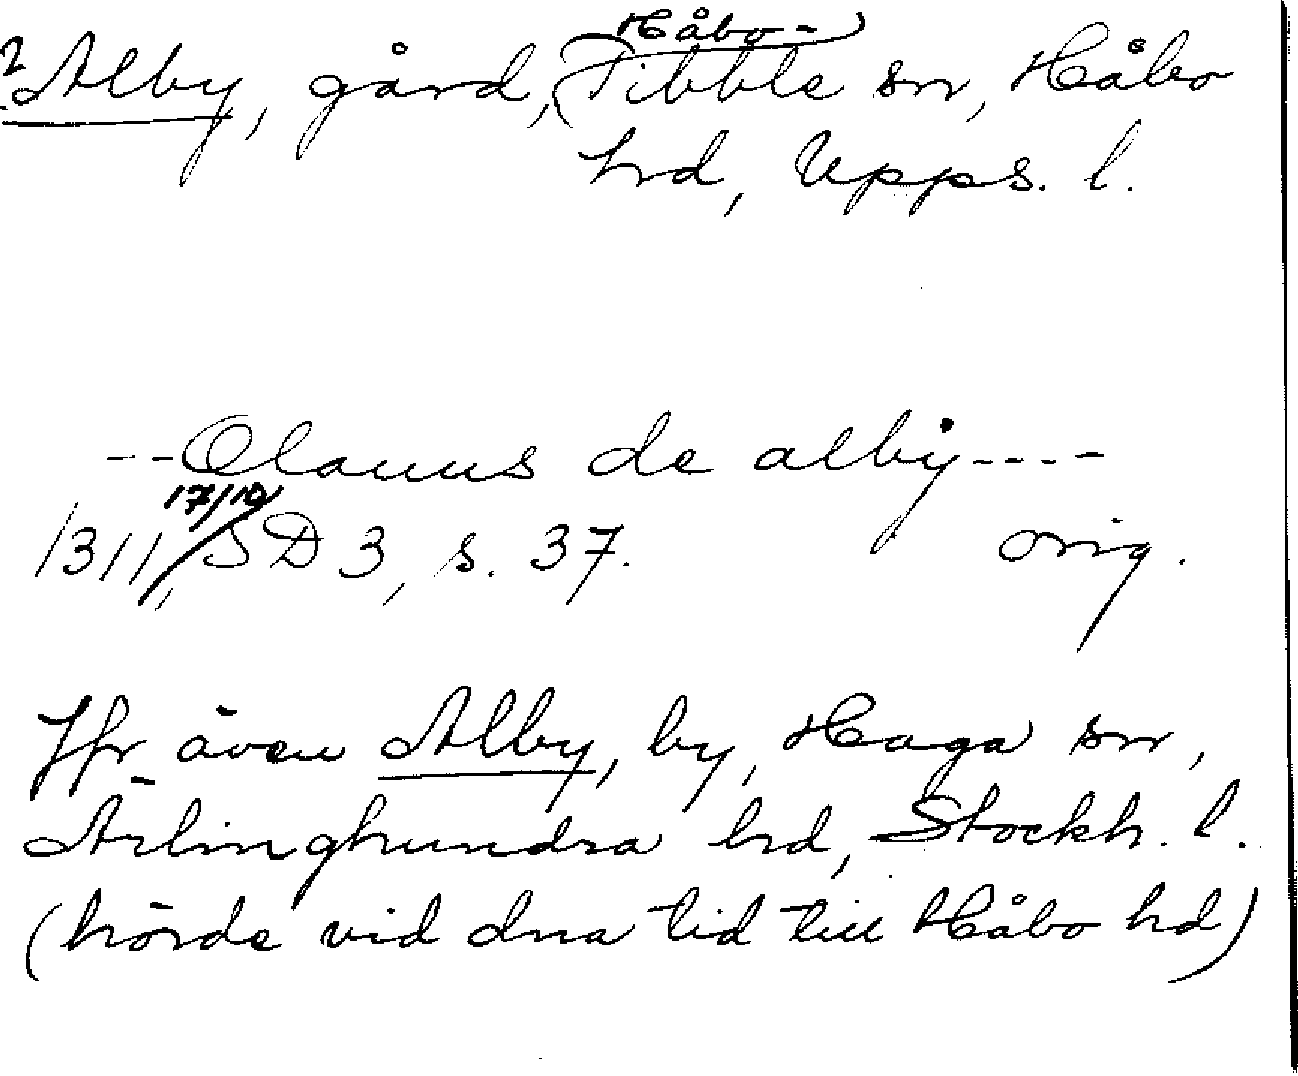 ? Alby, gård, Håbo-Tibble sn, Håbo
hrd, Upps. l.
--Olauus de alby----
1311 17/10, SD 3, s. 37. orig.
Jfr även Alby, by, Haga sn,
Ärlinghundra hrd, Stockh. l.
(hörde vid dna tid till Håbo hrd)